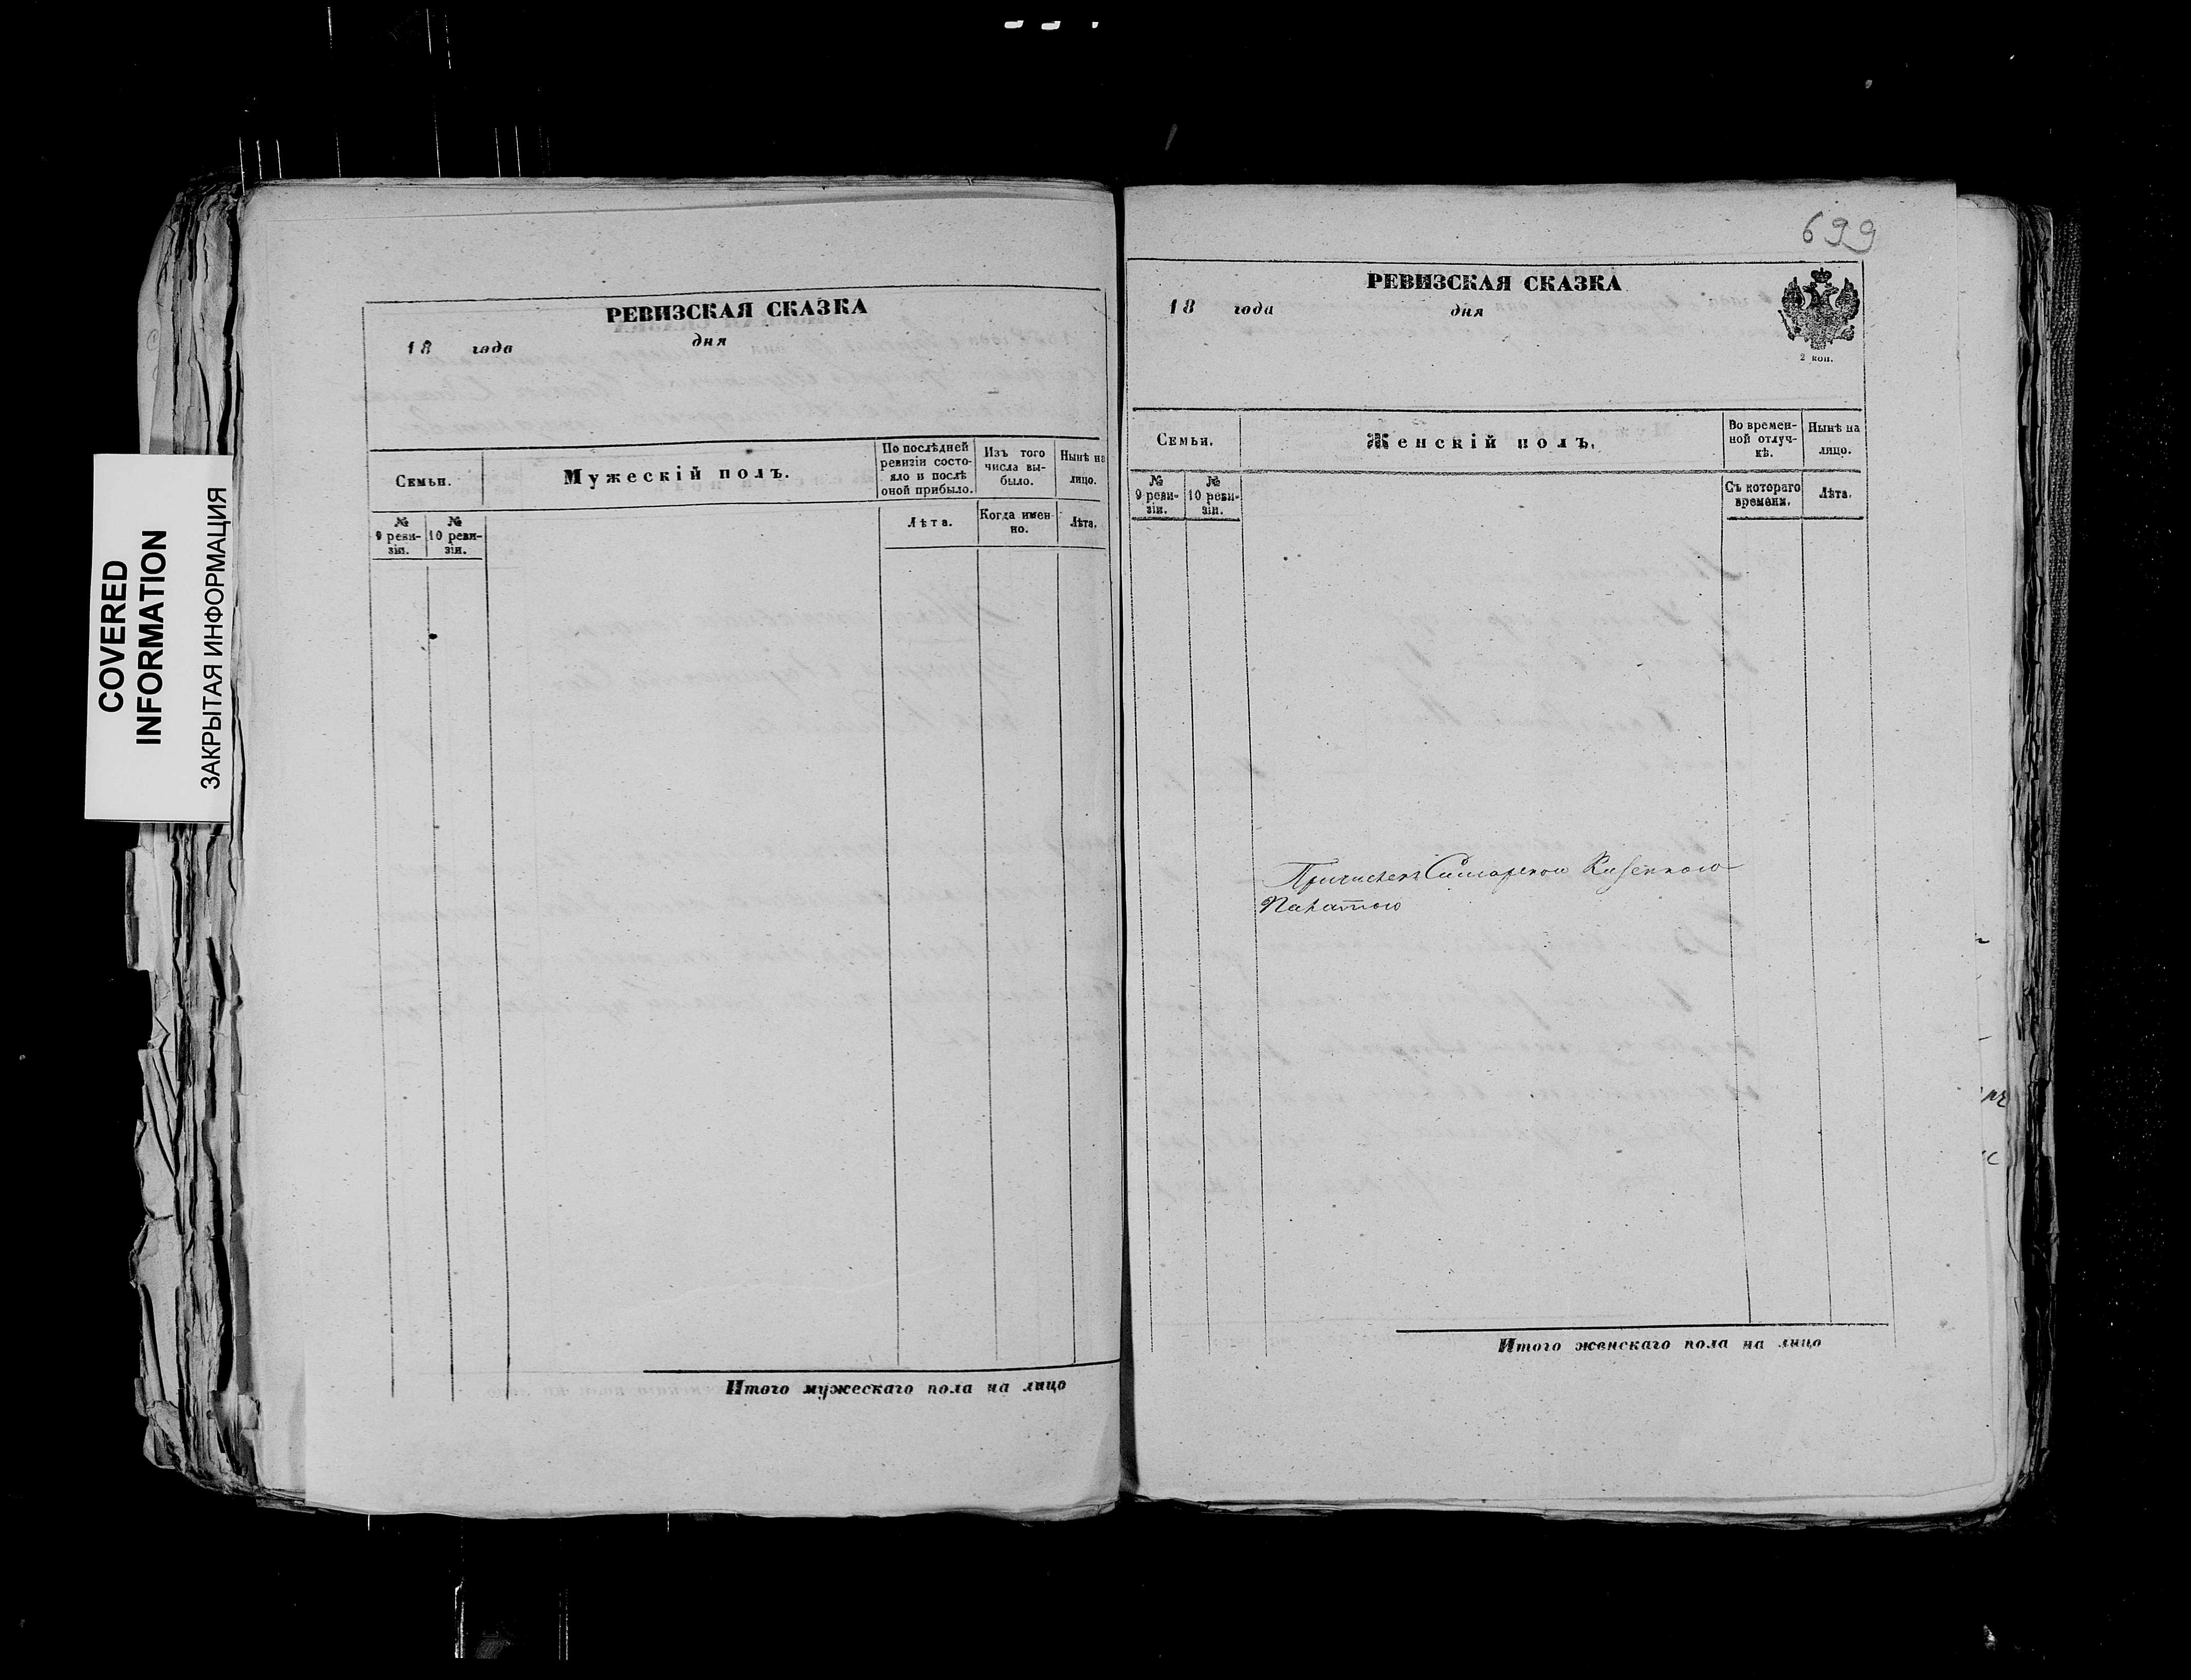 COVERED
INFORMATION
ЗАКРЫТАЯ ИНФОРМАЦИЯ
РЕВИЗСКАЯ СКАЗКА
18 года дня
Семьи.
Мужескій полъ.
По послѣдней
ревизіи состо-
яло и послѣ
оной прибыло.
Изъ того
числа вы-
было.
Нынѣ на
лицо.
№
9 реви-
зіи.
№
10 реви-
зіи.
Лѣта.
Когда имен-
но.
Лѣта.
Итого мужескаго пола на лицо
699
РЕВИЗСКАЯ СКАЗКА
18 года дня
2 коп.
Семьи.
Женскій полъ.
Во времен-
ной отлуч-
кѣ.
Нынѣ на
лицо.
№
9 реви-
зіи.
№
10 реви-
зіи.
Съ котораго
времени.
Лѣта.
Причислен Самарскою Казенною
Палатою
Итого женскаго пола на лицо